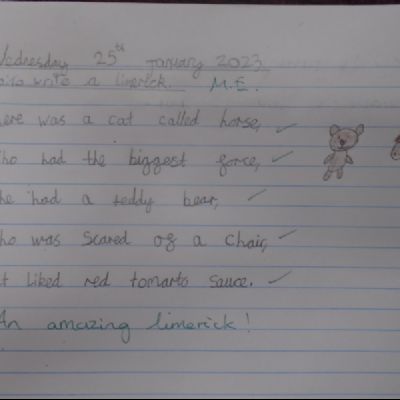 Wednesday 25th January 2023
to write a limerick. M.E.
here was a cat called horse,
ho had the biggest force,
he had a teddy bear,
ho was scared of a chair,
t liked red tomarto sauce.
An amazing limerick!